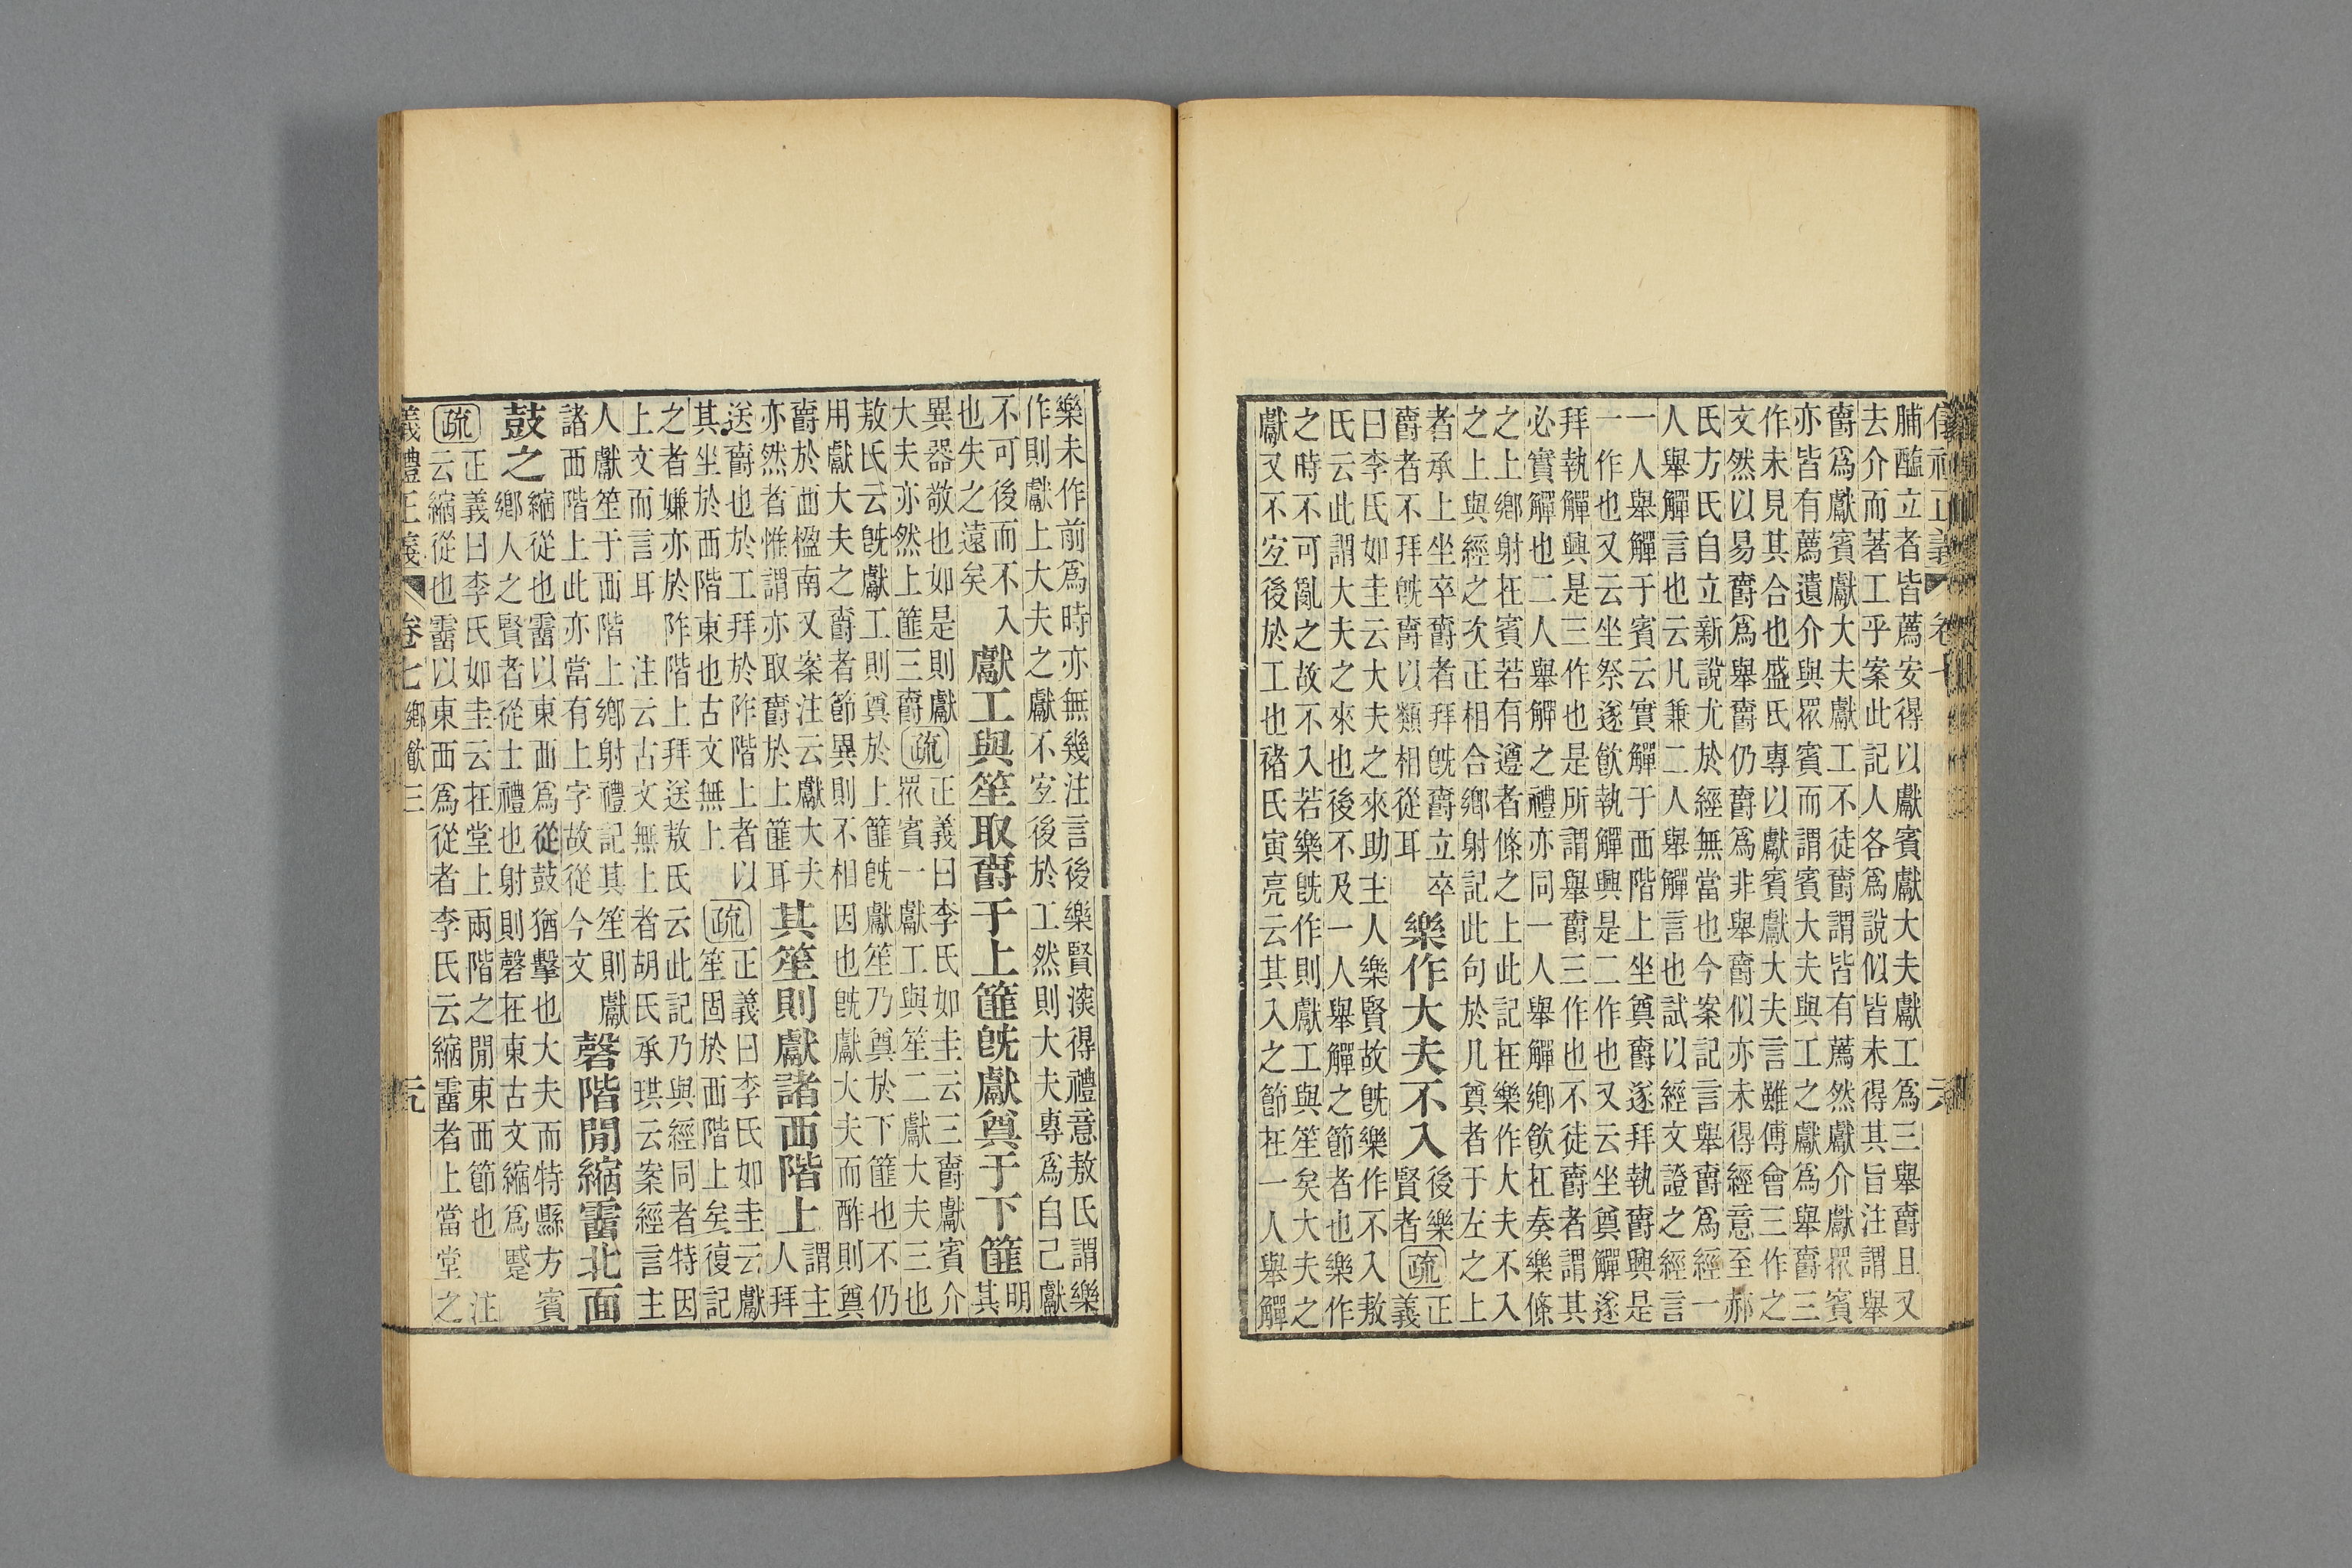 脯醢立者皆薦安得以獻賓獻大夫獻工為三舉爵且又
去介而著工乎案此記人各為說似皆未得其旨注謂舉
爵為獻賓獻大夫獻工不徒爵謂皆有薦然獻介獻眾賓
亦皆有薦遺介與眾賓而謂賓大夫與工之獻為舉爵三
作未見其合也盛氏專以獻賓獻大夫言雖傅會三作之
文然以易爵為舉爵仍爵為非舉爵似亦未得經意至郝
氏方氏自立新說尤於經無當也今案記言舉爵為經一
人舉觶言也云凡兼二人舉觶言也試以經文證之經言
一人舉觶于賓云實觶于西階上坐奠爵遂拜執爵興是
一作也又云坐祭遂飲執觶興是二作也又云坐奠觶遂
拜執觶興是三作也是所謂舉爵三作也不徒爵者謂其
必實觶也二人舉觶之禮亦同一人舉觶鄉飲在奏樂條
之上鄉射在賓若有遵者條之上此記在樂作大夫不入
之上與經之次正相合鄉射記此句於凡奠者于左之上
者承上坐卒爵者拜既爵立卒
爵者不拜既爵以類相從耳
樂作大夫不入
後樂
賢者
疏
正
義
曰李氏如圭云大夫之來助主人樂賢故既樂作不入敖
氏云此謂大夫之來也後不及一人舉觶之節者也樂作
之時不可亂之故不入若樂既作則獻工與笙矣大夫之
獻又不宜後於工也褚氏寅亮云其入之節在一人舉觶
樂未作前為時亦無幾注言後樂賢深得禮意敖氏謂樂
作則獻上大夫之獻不宜後於工然則大夫專為自己獻
不可後而不入
也失之遠矣
獻工與笙取爵于上篚既獻奠于下篚
明
其
異器敬也如是則獻
大夫亦然上篚三爵
疏
正義曰李氏如圭云三爵獻賓介
眾賓一獻工與笙二獻大夫三也
敖氏云既獻工則奠於上篚既獻笙乃奠於下篚也不仍
用獻大夫之爵者節異則不相因也既獻大夫而酢則奠
爵於西楹南又案注云獻大夫
亦然者惟謂亦取爵於上篚耳
其笙則獻諸西階上
謂主
人拜
送爵也於工拜於阼階上者以
其坐於西階東也古文無上
疏
正義曰李氏如圭云獻
笙固於西階上矣復記
之者嫌亦於阼階上拜送敖氏云此記乃與經同者特因
上文而言耳 注云古文無上者胡氏承珙云案經言主
人獻笙于西階上鄉射禮記其笙則獻
諸西階上此亦當有上字故從今文
磬階閒縮霤北面
鼓之
縮從也霤以東西為從鼓猶擊也大夫而特縣方賓
鄉人之賢者從士禮也射則磬在東古文縮為蹙
疏
正義曰李氏如圭云在堂上兩階之閒東西節也 注
云縮從也霤以東西為從者李氏云縮霤者上當堂之
義禮正義 卷七 鄉飲三